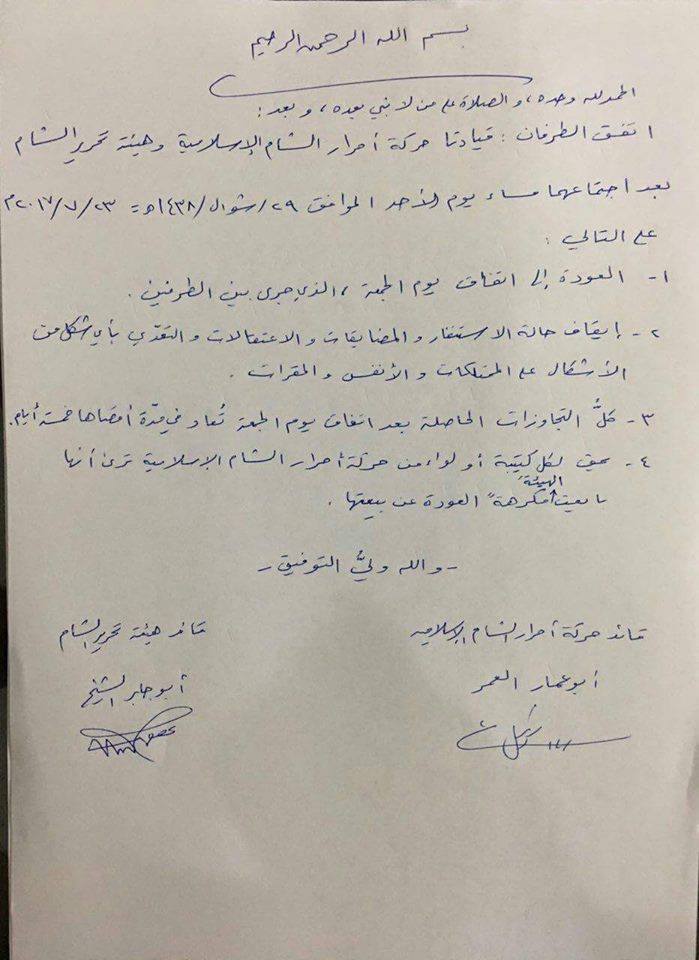 بسم الله الرحمن الرحيم
الحمد لله وحده، والصلاة على من لا نبي بعده، وبعد:
اتفق الطرفان: قيادتا حركة أحرار الشام الإسلامية وهيئة تحرير الشام
بعد اجتماعهما مساء يوم الأحد الموافق ٢٩/شوال/١٤٣٨هـ = ٢٠١٧/٧/٢٣م
على التالي:
١- العودة إلى اتفاق يوم الجمعة، الذي جرى بين الطرفين.
٢- إيقاف حالة الاستنفار والمضايقات والاعتقالات والتعدّي بأي شكل من
الأشكال على الممتلكات والأنفس والمقرات.
٣- كلُّ التجاوزات الحاصلة بعد اتفاق يوم الجمعة تُعاد في مدّة أقصاها خمسة أيام.
٤- يحق لكل كتيبة أو لواء من حركة أحرار الشام الإسلامية ترى أنها
بايعت الهيئة مكرهة العودة عن بيعتها.
- والله وليُّ التوفيق -
قائد حركة أحرار الشام الإسلامية
قائد هيئة تحرير الشام
أبو عمار العمر
أبو جابر الشيخ